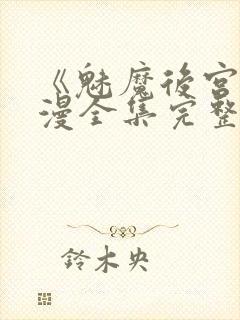 《魅魔後宮
漫全集完整
鈴木央